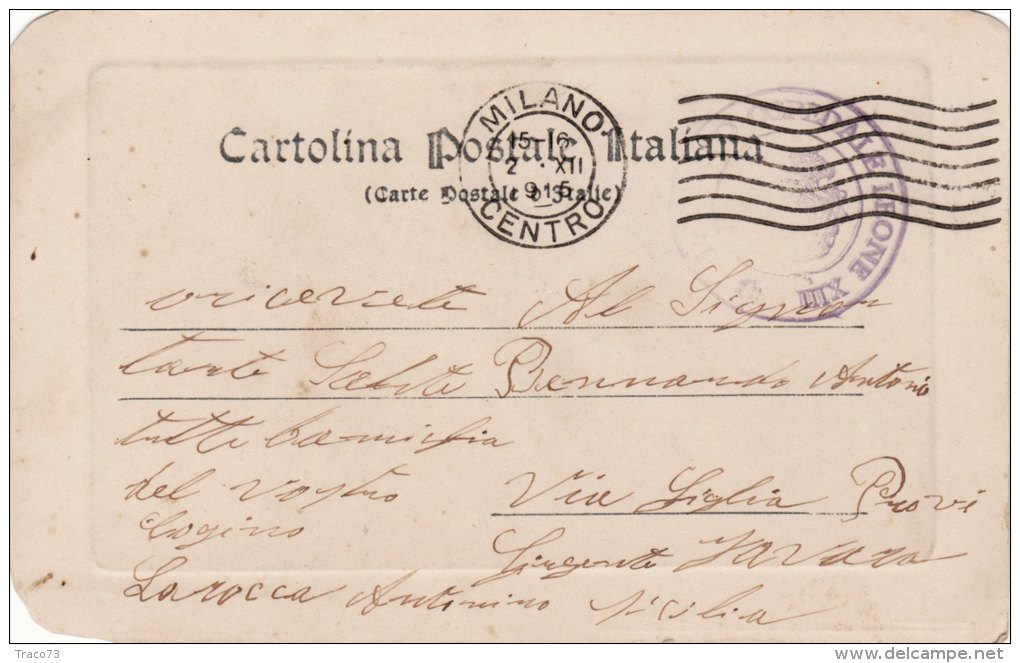 Cartolina Postale Italiana
(Carte Postale d'Italie)
MILANO
15-16
2 · XII
915
CENTRO
OSPEDALE LEONE XIII
oricevete Al Signor
tante Salute Bennardo Antonio
tutte famiglia
del vostro
Cogino
Via Giglia Provi
Girgente Favara
Larocca Antonino Sicilia
Traco73
www.delcampe.net